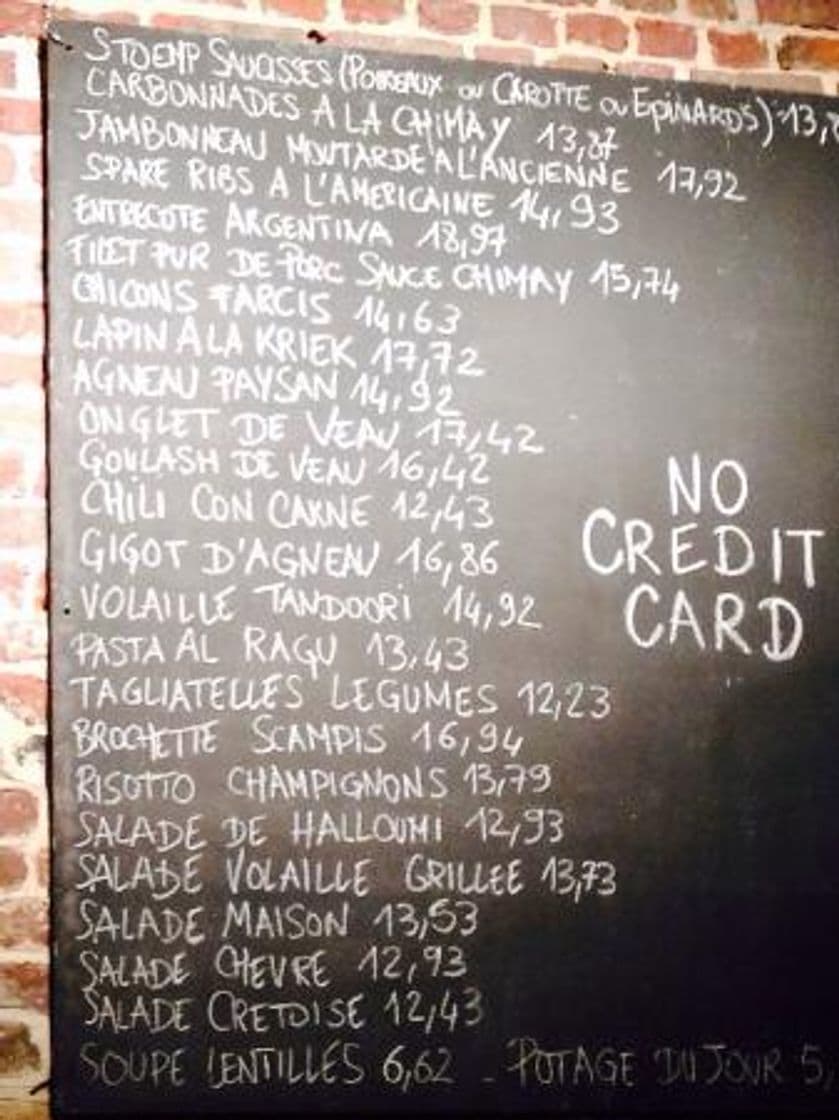 STOEMP SAUCISSES (POIREAUX OU CAROTTE OU EPINARDS) 13,
CARBONNADES A LA CHIMAY 13,87
JAMBONNEAU MOUTARDE A L'ANCIENNE 17,92
SPARE RIBS A L'AMERICAINE 14,93
ENTRECOTE ARGENTINA 18,97
FILET PUR DE PORC SAUCE CHIMAY 15,74
CHICONS FARCIS 14,63
LAPIN A LA KRIEK 17,72
AGNEAU PAYSAN 14,92
ONGLET DE VEAU 17,42
GOULASH DE VEAU 16,42
CHILI CON CARNE 12,43
GIGOT D'AGNEAU 16,86
VOLAILLE TANDOORI 14,92
PASTA AL RAGU 13,43
TAGLIATELLES LEGUMES 12,23
BROCHETTE SCAMPIS 16,94
RISOTTO CHAMPIGNONS 13,79
SALADE DE HALLOUMI 12,93
SALADE VOLAILLE GRILLEE 13,73
SALADE MAISON 13,53
SALADE CHEVRE 12,93
SALADE CRETOISE 12,43
SOUPE LENTILLES 6,62 - POTAGE DU JOUR 5,
NO
CREDIT
CARD